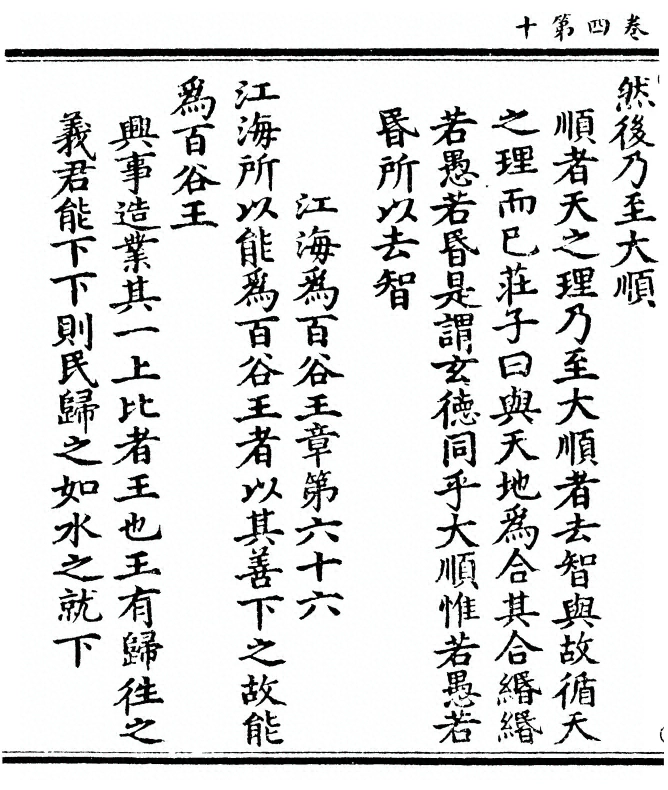 卷四第十
然後乃至大順
順者天之理乃至大順者去智與故循天
之理而已莊子曰與天地爲合其合緡緡
若愚若昬是謂玄德同乎大順惟若愚若
昬所以去智
江海爲百谷王章第六十六
江海所以能爲百谷王者以其善下之故能
爲百谷王
興事造業其一上比者王也王有歸徃之
義君能下下則民歸之如水之就下